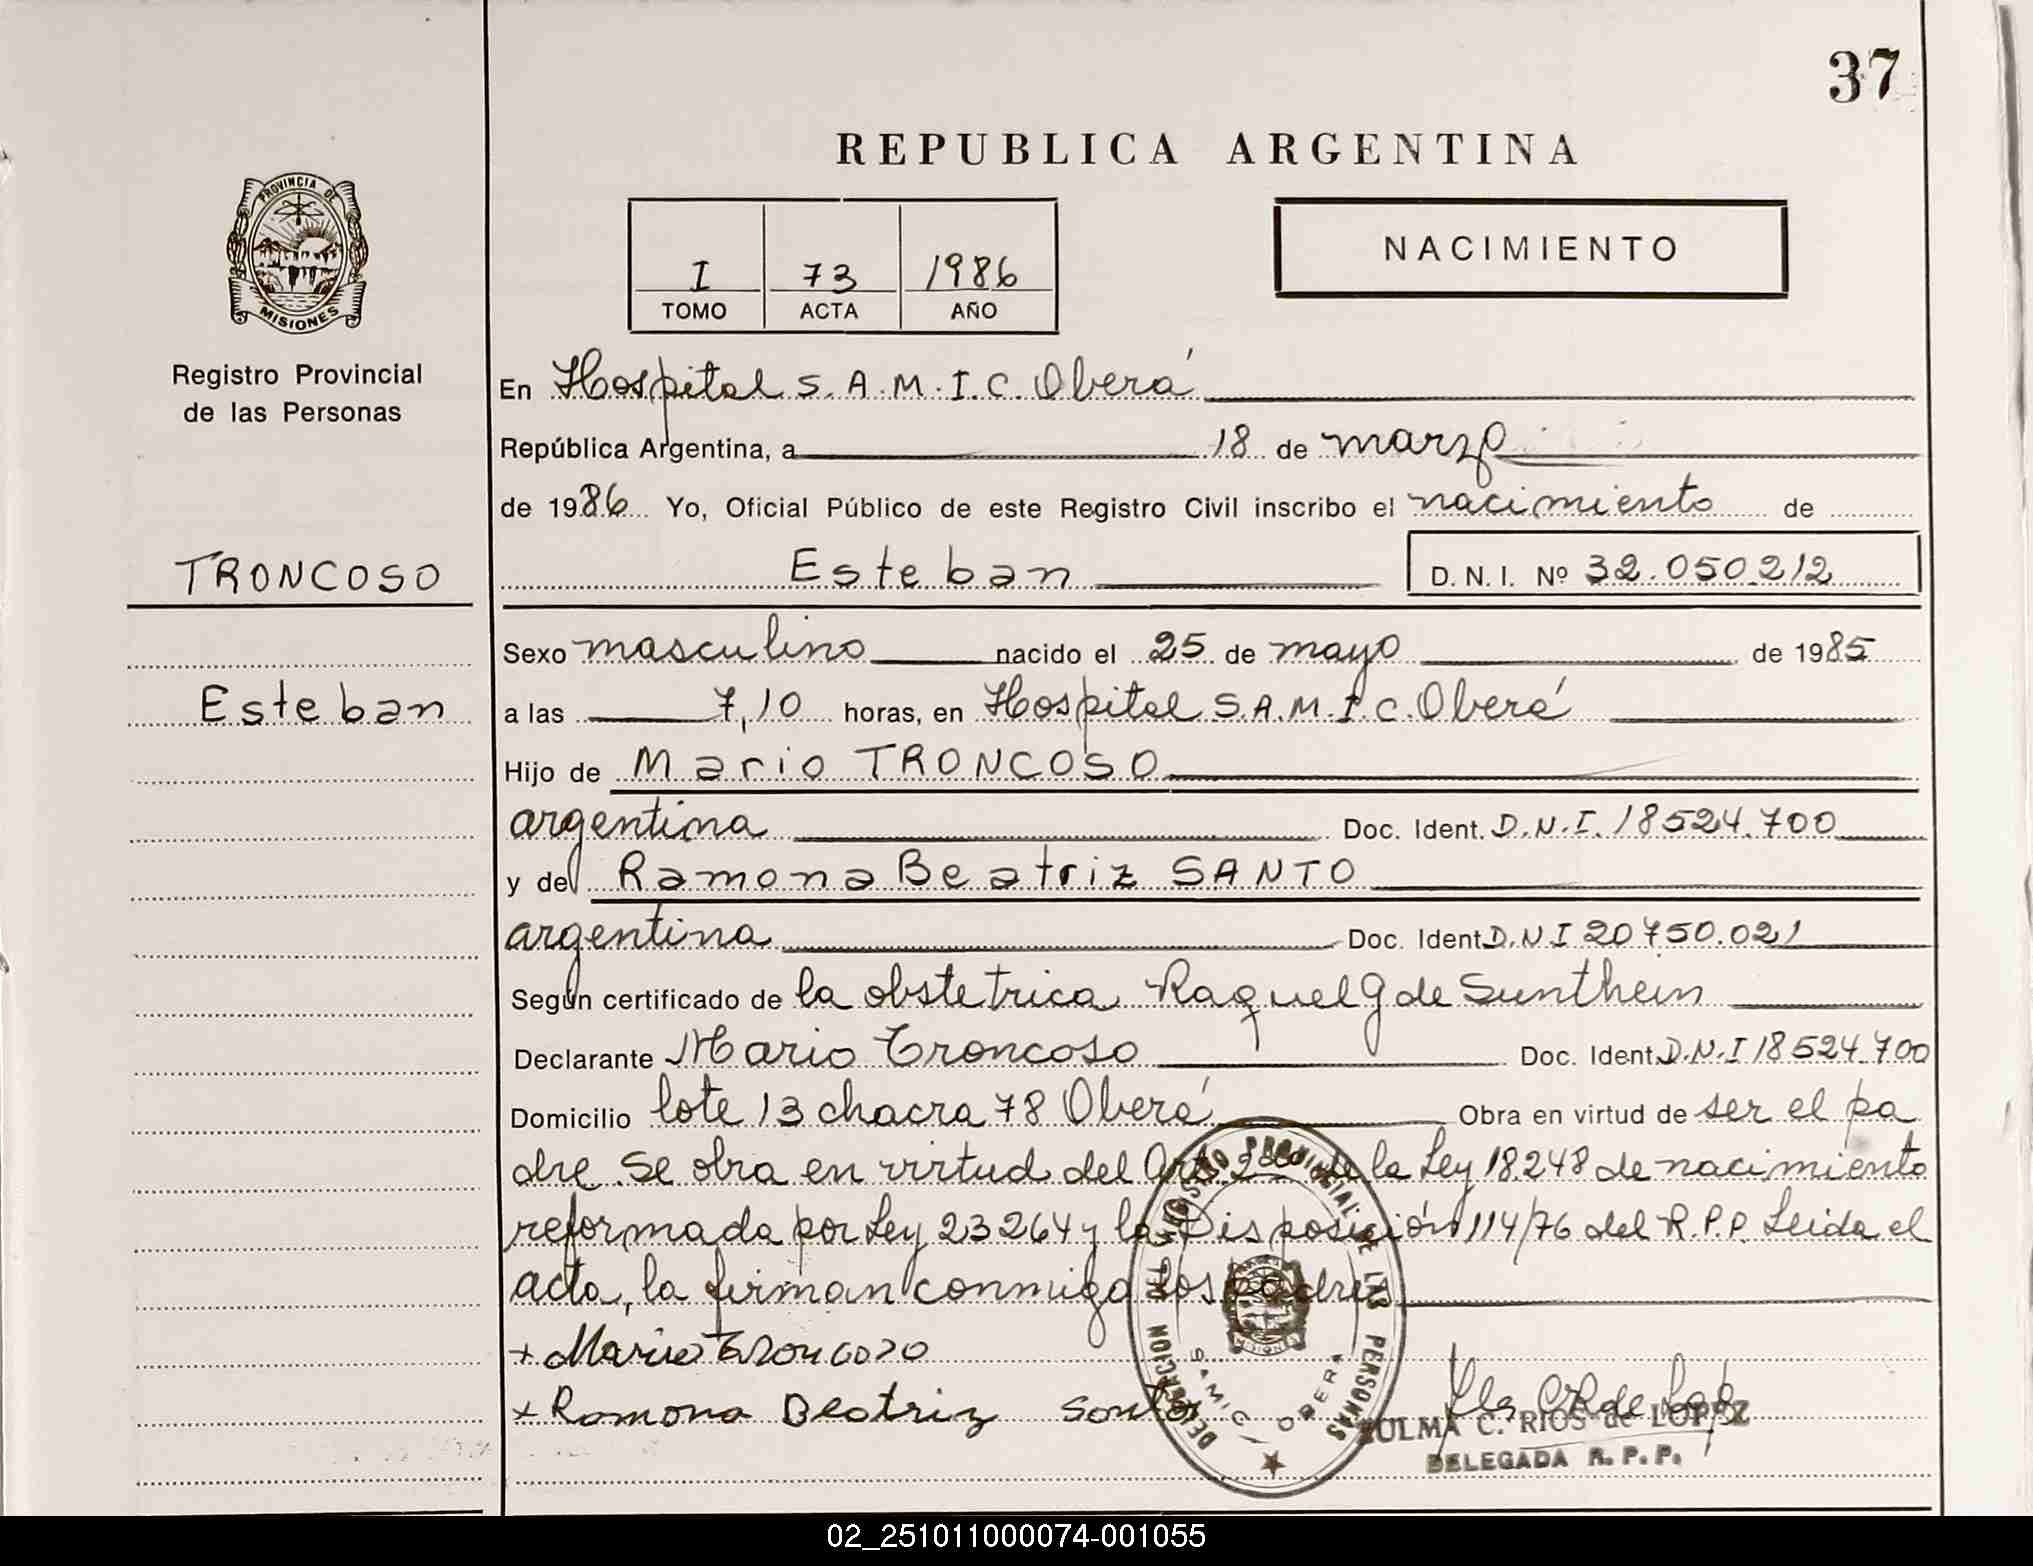 37
REPUBLICA ARGENTINA
PROVINCIA DE
MISIONES
Registro Provincial
de las Personas
I 73 1986
TOMO ACTA AÑO
NACIMIENTO
En Hospital S.A.M.I.C. Oberá
República Argentina, a 18 de marzo
de 1986 Yo, Oficial Público de este Registro Civil inscribo el nacimiento de
TRONCOSO
Esteban D.N.I. Nº 32.050.212
Sexo masculino nacido el 25 de mayo de 1985
Esteban
a las 7,10 horas, en Hospital S.A.M.I.C. Oberá
Hijo de Mario TRONCOSO
argentina Doc. Ident. D.N.I. 18524.700
y de Ramona Beatriz SANTO
argentina Doc. Ident D.N.I 20750.021
Según certificado de la obstetrica Raquel G de Sunthein
Declarante Mario Troncoso Doc. Ident. D.N.I 18524.700
Domicilio lote 13 chacra 78 Oberá Obra en virtud de ser el pa
dre. Se obra en virtud del Art. 2do de la Ley 18.248 de nacimiento
reformada por Ley 23264 y la Disposición 114/76 del R.P.P. Leida el
acta, la firman conmigo los padres
+ Mario Troncoso
+ Ramona Beatriz Santo
DELEGACION DEL REGISTRO PROVINCIAL DE LAS PERSONAS
SAMIC OBERA
ZULMA C. RIOS de LOPEZ
DELEGADA R.P.P.
02_251011000074-001055